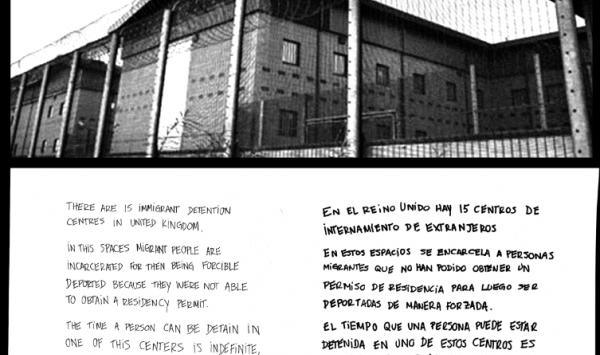 THERE ARE 15 IMMIGRANT DETENTION
CENTRES IN UNITED KINGDOM.
IN THIS SPACES MIGRANT PEOPLE ARE
INCARCERATED FOR THEN BEING FORCIBLE
DEPORTED BECAUSE THEY WERE NOT ABLE
TO OBTAIN A RESIDENCY PERMIT.
THE TIME A PERSON CAN BE DETAIN IN
ONE OF THIS CENTERS IS INDEFINITE,
EN EL REINO UNIDO HAY 15 CENTROS DE
INTERNAMIENTO DE EXTRANJEROS
EN ESTOS ESPACIOS SE ENCARCELA A PERSONAS
MIGRANTES QUE NO HAN PODIDO OBTENER UN
PERMISO DE RESIDENCIA PARA LUEGO SER
DEPORTADAS DE MANERA FORZADA.
EL TIEMPO QUE UNA PERSONA PUEDE ESTAR
DETENIDA EN UNO DE ESTOS CENTROS ES